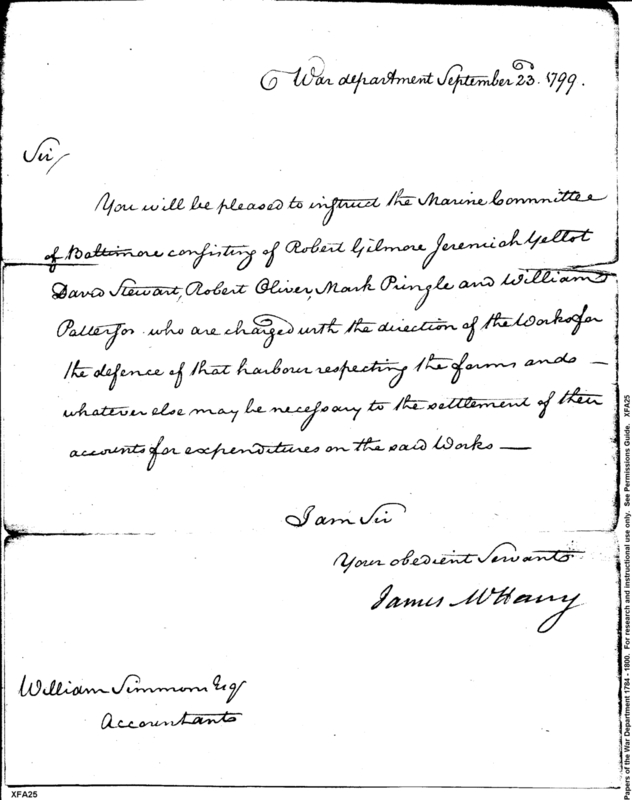 War department September 23. 1799.
Sir/
You will be pleased to instruct the Marine Committee
of Baltimore consisting of Robert Gilmore Jeremiah Yellot
David Stewart, Robert Oliver, Mark Pringle and William
Patterson who are charged with the direction of the Works for
the defence of that harbour respecting the forms and
whatever else may be necessary to the settlement of their
accounts for expenditures on the said Works —
I am Sir
Your obedient Servant
James McHenry
William Simmons Esq
Accountant
XFA25
Papers of the War Department 1784 - 1800. For research and instructional use only. See Permissions Guide. XFA25